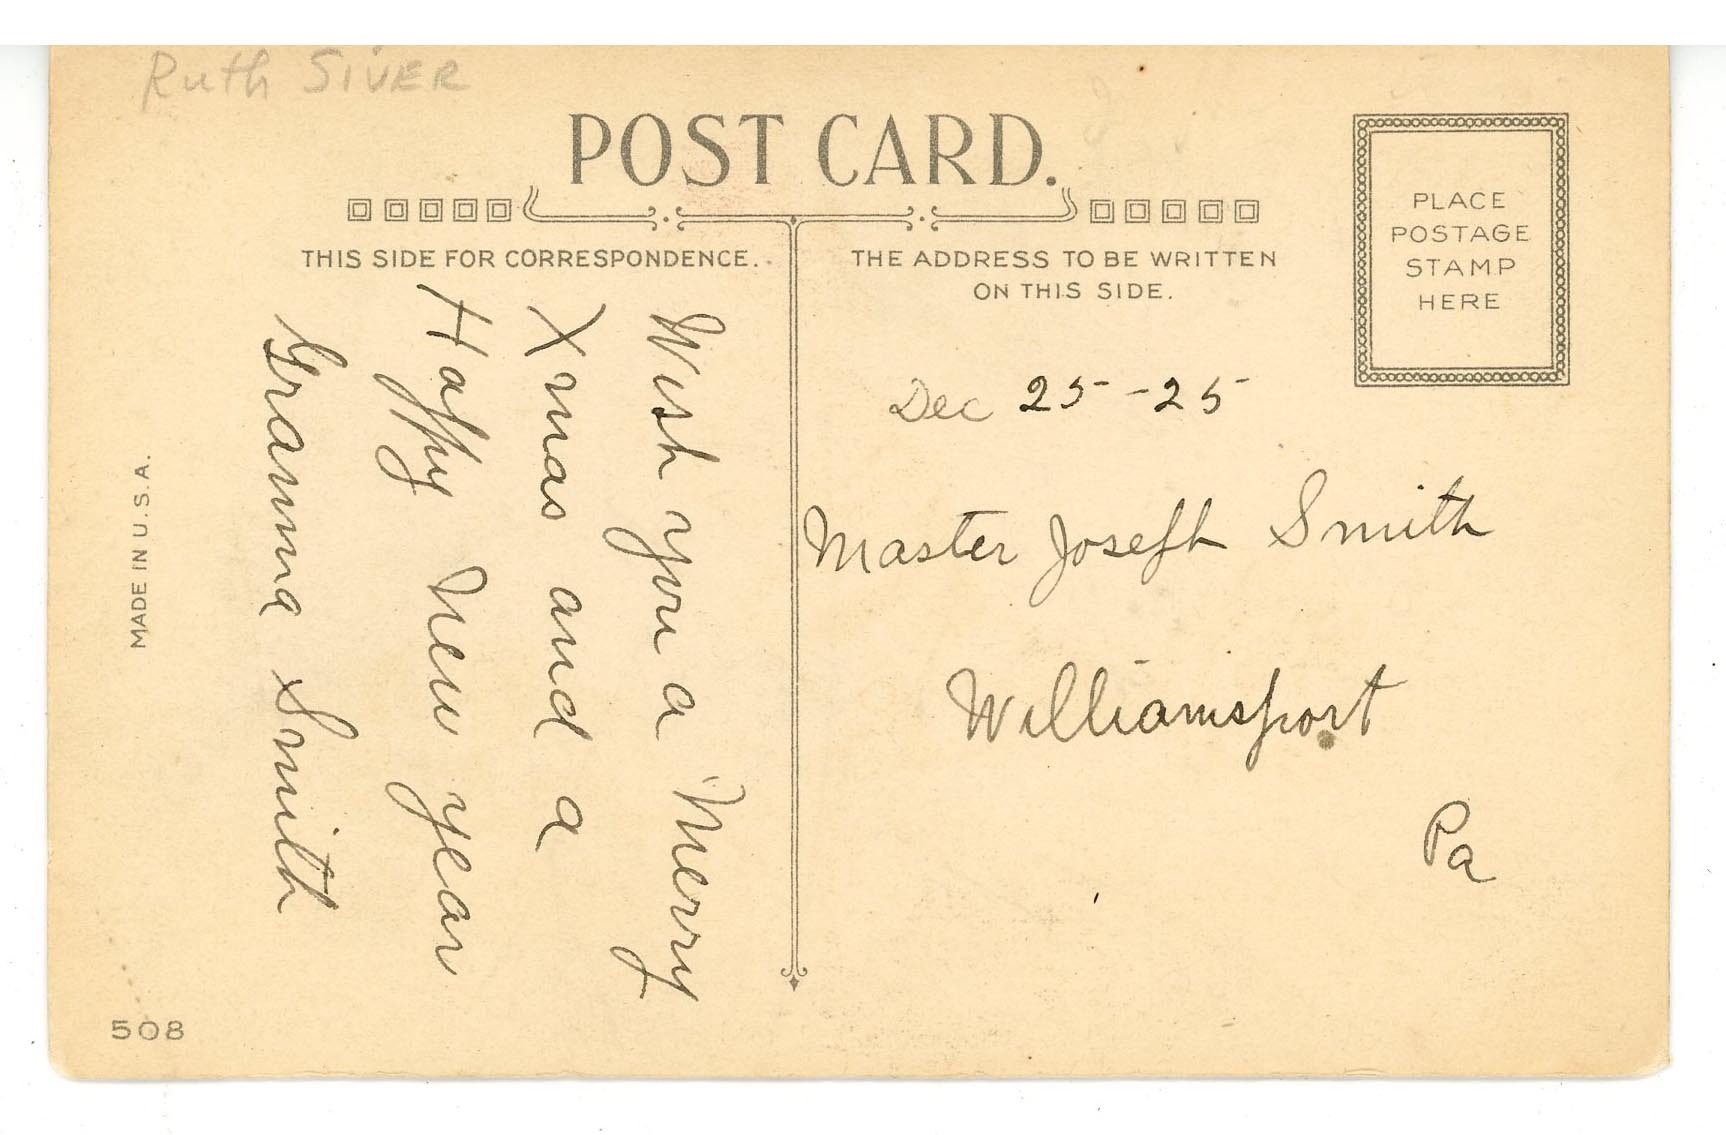 Ruth SIVER
POST CARD.
THIS SIDE FOR CORRESPONDENCE.
THE ADDRESS TO BE WRITTEN
ON THIS SIDE.
PLACE
POSTAGE
STAMP
HERE
Wish you a Merry
Xmas and a
Happy New year
Granma Smith
Dec 25 - 25
Master Joseph Smith
Williamsport
Pa
MADE IN U.S.A.
508